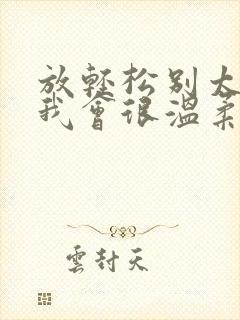 放輕松別太
我會很溫柔
雲封天